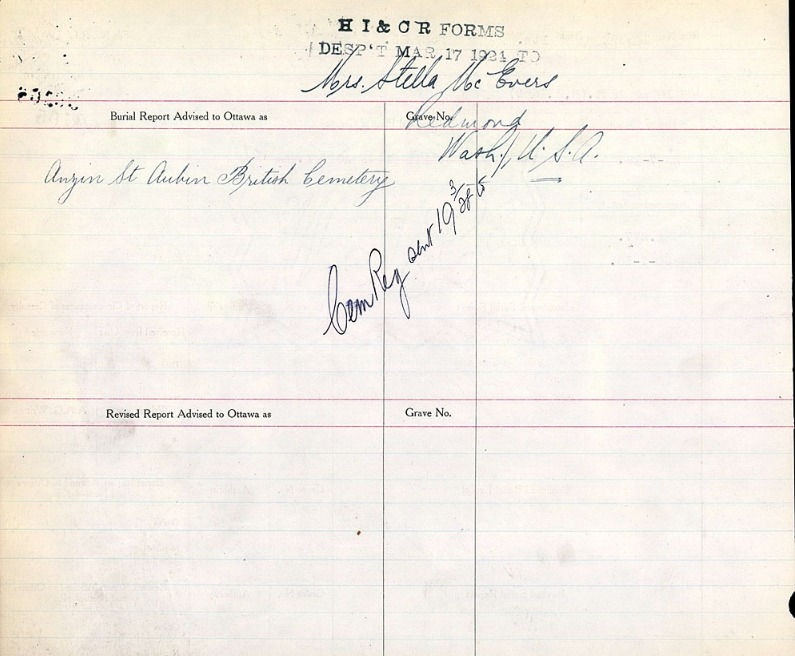 H I & C R FORMS
DESP'T MAR 17 1921 TO
Mrs. Stella Mc Evers
Burial Report Advised to Ottawa as
Grave No.
Redmond
Wash., U. S. A.
Anzin St Aubin British Cemetery
Cem Reg sent 19
Revised Report Advised to Ottawa as
Grave No.